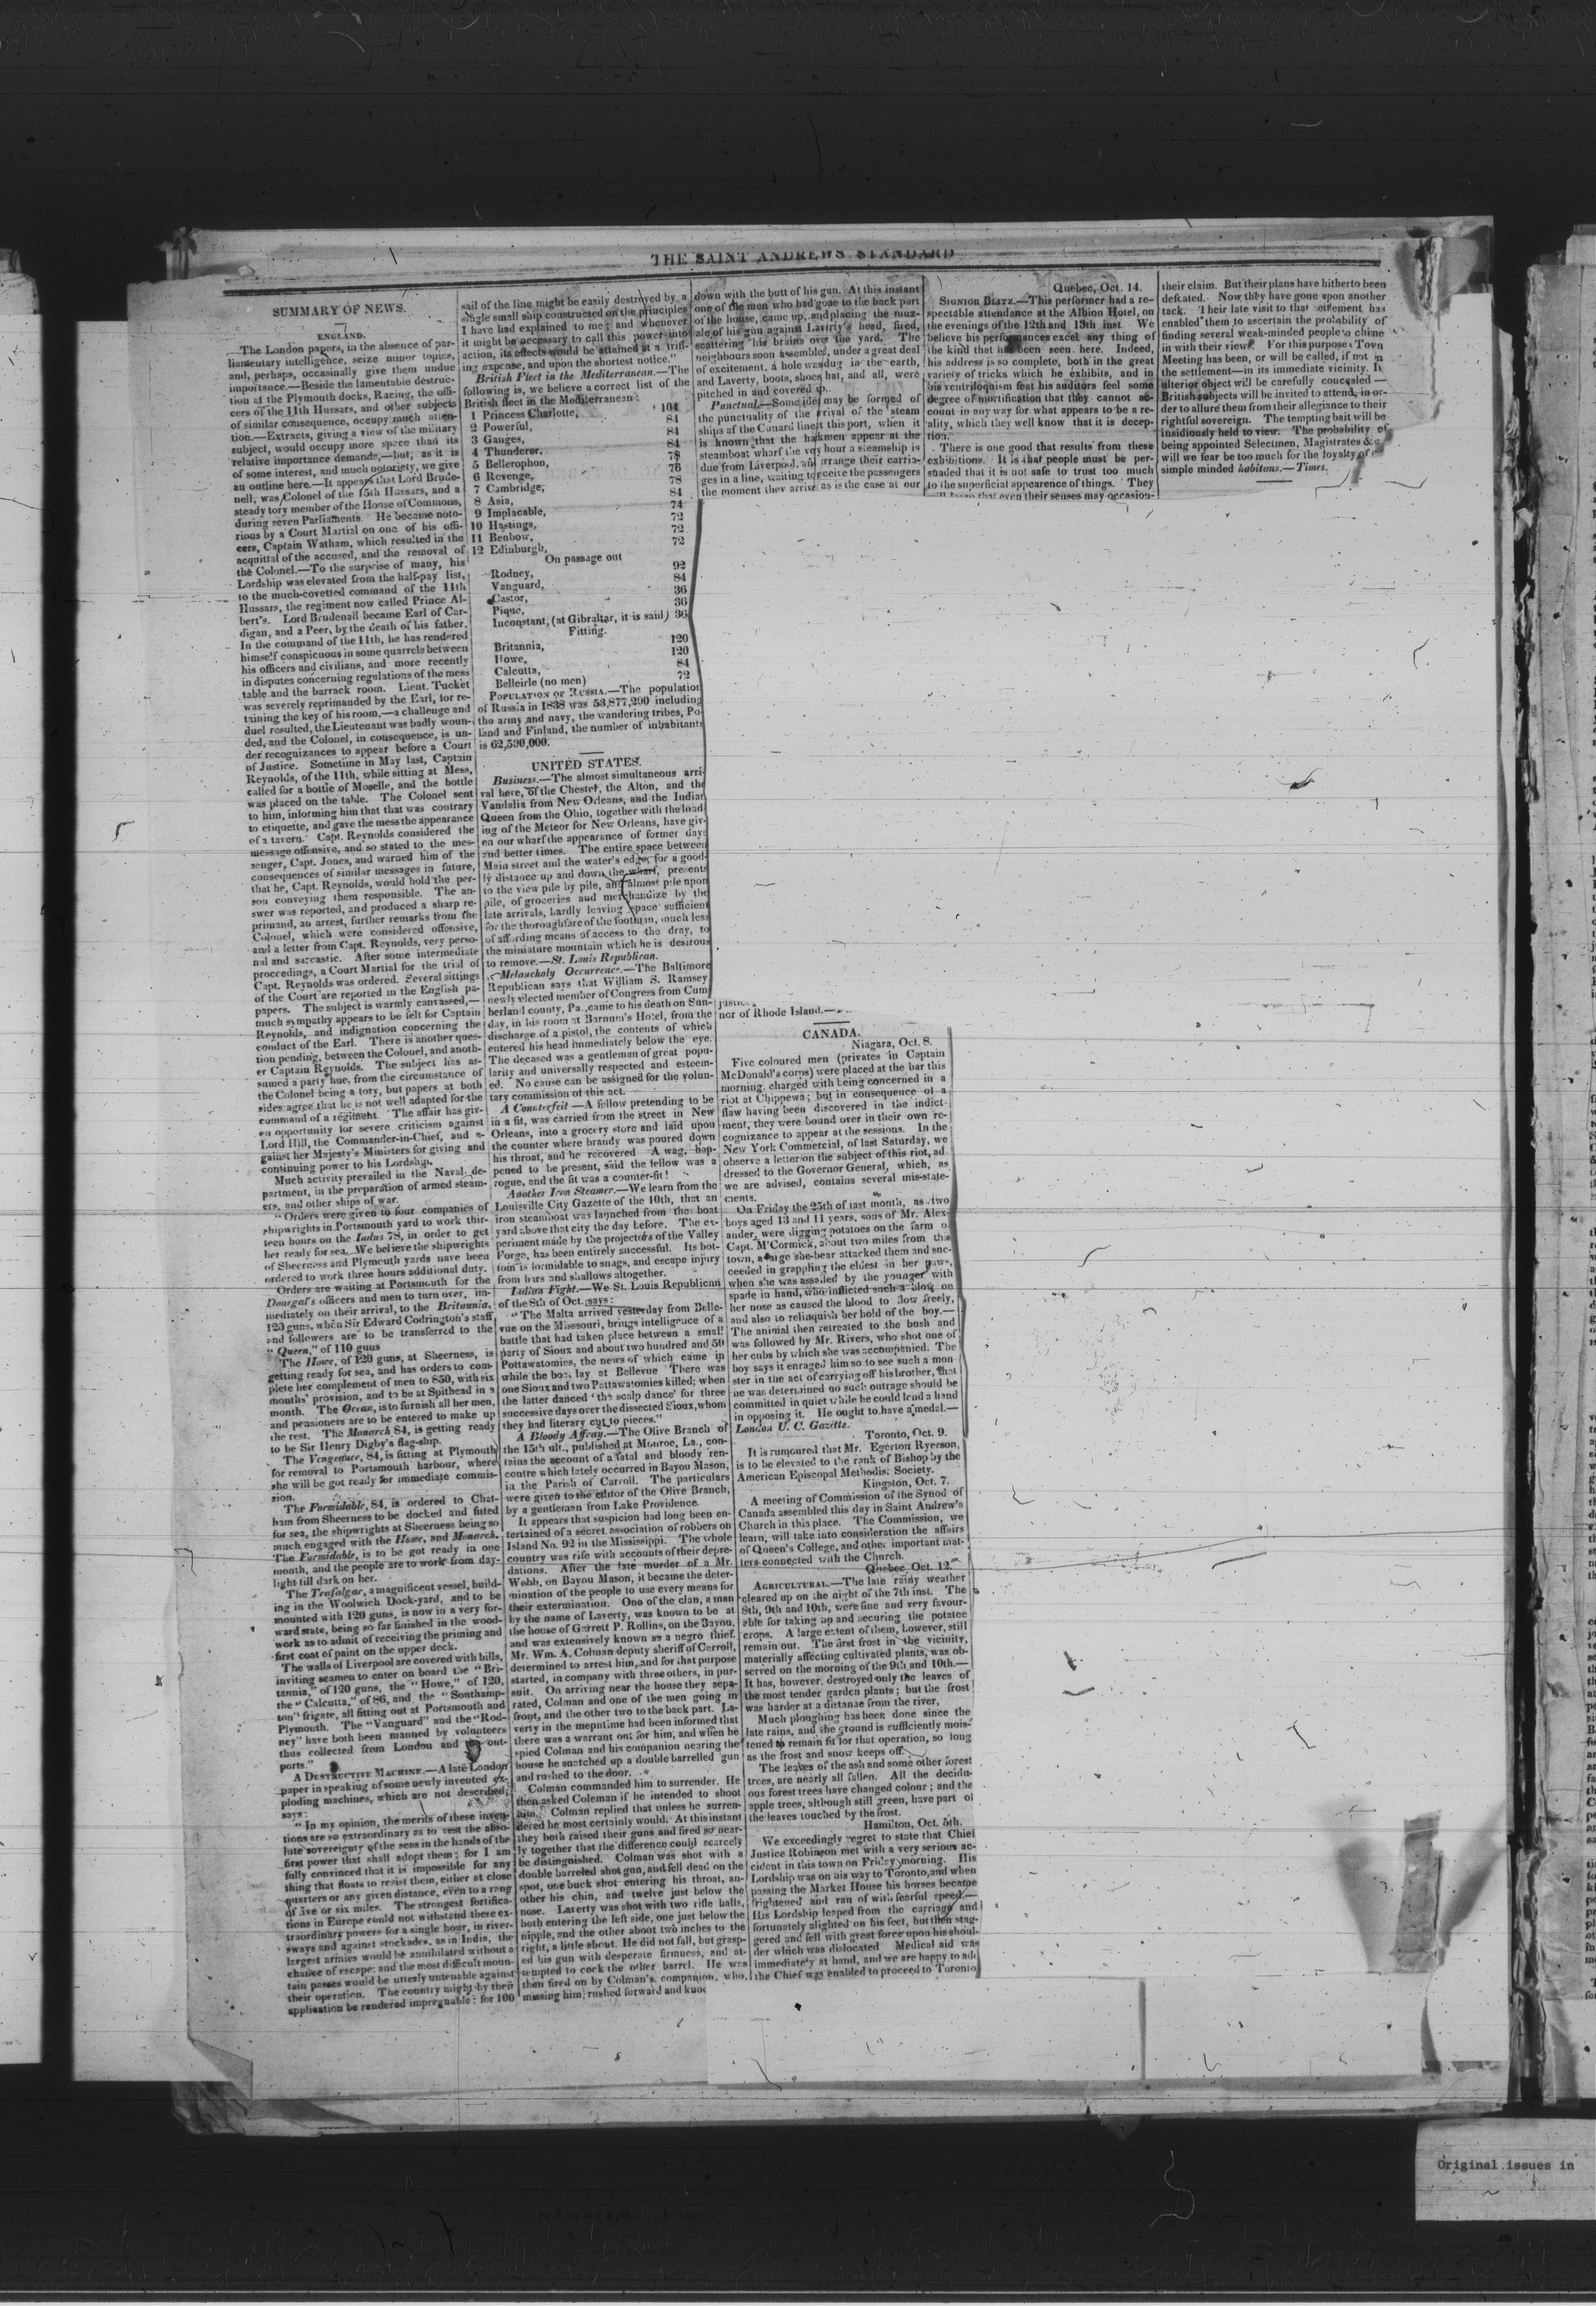 THE SAINT ANDREWS STANDARD
SUMMARY OF NEWS.
ENGLAND.
The London papers, in the absence of par-
liamentary intelligence, seize minor topics,
and, perhaps, occasionally give them undue
importance.—Beside the lamentable destruc-
tion at the Plymouth docks, Racing, the offi-
cers of the 11th Hussars, and other subjects
of similar consequence, occupy much atten-
tion.—Extracts, giving a view of the military
subject, would occupy more space than its
relative importance demands,—but, as it is
of some interest, and much notoriety, we give
an outline here.—It appears that Lord Brude-
nell, was Colonel of the 15th Hussars, and a
steady tory member of the House of Commons,
during seven Parliaments. He became noto-
rious by a Court Martial on one of his offi-
cers, Captain Watham, which resulted in the
acquittal of the accused, and the removal of
the Colonel.—To the surprise of many, his
Lordship was elevated from the half-pay list,
to the much-covetted command of the 11th
Hussars, the regiment now called Prince Al-
bert's. Lord Brudenall became Earl of Car-
digan, and a Peer, by the death of his father.
In the command of the 11th, he has rendered
himself conspicuous in some quarrels between
his officers and civilians, and more recently
in disputes concerning regulations of the mess
table and the barrack room. Lieut. Tucket
was severely reprimanded by the Earl, for re-
taining the key of his room,—a challenge and
duel resulted, the Lieutenant was badly woun-
ded, and the Colonel, in consequence, is un-
der recognizances to appear before a Court
of Justice. Sometime in May last, Captain
Reynolds, of the 11th, while sitting at Mess,
called for a bottle of Moselle, and the bottle
was placed on the table. The Colonel sent
to him, informing him that that was contrary
to etiquette, and gave the mess the appearance
of a tavern. Capt. Reynolds considered the
message offensive, and so stated to the mes-
senger, Capt. Jones, and warned him of the
consequences of similar messages in future,
that he, Capt. Reynolds, would hold the per-
son conveying them responsible. The an-
swer was reported, and produced a sharp re-
primand, an arrest, further remarks from the
Colonel, which were considered offensive,
and a letter from Capt. Reynolds, very perso-
nal and sarcastic. After some intermediate
proceedings, a Court Martial for the trial of
Capt. Reynolds was ordered. Several sittings
of the Court are reported in the English pa-
papers. The subject is warmly canvassed,—
much sympathy appears to be felt for Captain
Reynolds, and indignation concerning the
conduct of the Earl. There is another ques-
tion pending, between the Colonel, and anoth-
er Captain Reynolds. The subject has as-
sumed a party hue, from the circumstance of
the Colonel being a tory, but papers at both
sides agree that he is not well adapted for the
command of a regiment. The affair has giv-
en opportunity for severe criticism against
Lord Hill, the Commander-in-Chief, and a-
gainst her Majesty's Ministers for giving and
continuing power to his Lordship.
Much activity prevailed in the Naval de-
partment, in the preparation of armed steam-
ers, and other ships of war.
"Orders were given to four companies of
shipwrights in Portsmouth yard to work thir-
teen hours on the Indus 78, in order to get
her ready for sea. We believe the shipwrights
of Sheerness and Plymouth yards have been
ordered to work three hours additional duty.
Orders are waiting at Portsmouth for the
Donegal's officers and men to turn over, im-
mediately on their arrival, to the Britannia,
120 guns, when Sir Edward Codrington's staff
and followers are to be transferred to the
"Queen," of 110 guns
The Howe, of 120 guns, at Sheerness, is
getting ready for sea, and has orders to com-
plete her complement of men to 850, with six
months' provision, and to be at Spithead in a
month. The Ocean, is to furnish all her men,
and pensioners are to be entered to make up
the rest. The Monarch 84, is getting ready
to be Sir Henry Digby's flag-ship.
The Vengeance, 84, is fitting at Plymouth
for removal to Portsmouth harbour, where
she will be got ready for immediate commis-
sion.
The Formidable, 84, is ordered to Chat-
ham from Sheerness to be docked and fitted
for sea, the shipwrights at Sheerness being so
much engaged with the Howe, and Monarch.
The Formidable, is to be got ready in one
month, and the people are to work from day-
light till dark on her.
The Trafalgar, a magnificent vessel, build-
ing in the Woolwich Dock-yard, and to be
mounted with 120 guns, is now in a very for-
ward state, being so far finished in the wood-
work as to admit of receiving the priming and
first coat of paint on the upper deck.
The walls of Liverpool are covered with bills,
inviting seamen to enter on board the "Bri-
tannia," of 120 guns, the "Howe," of 120,
the "Calcutta," of 86, and the "Southamp-
ton" frigate, all fitting out at Portsmouth and
Plymouth. The "Vanguard" and the "Rod-
ney" have both been manned by volunteers
thus collected from London and the out-
ports."
A DESTRUCTIVE MACHINE.—A late London
paper in speaking of some newly invented ex-
ploding machines, which are not described,
says:
"In my opinion, the merits of these inven-
tions are so extraordinary as to vest the abso-
lute sovereignty of the seas in the hands of the
first power that shall adopt them; for I am
fully convinced that it is impossible for any
thing that floats to resist them, either at close
quarters or any given distance, even to a rang
of five or six miles. The strongest fortifica-
tions in Europe could not withstand these ex-
traordinary powers for a single hour, in river-
sways and against stockades, as in India, the
largest armies would be annihilated without a
chance of escape; and the most difficult moun-
tain passes would be utterly untenable against
their operation. The country might by their
application be rendered impregnable; for 100
sail of the line might be easily destroyed by a
single small ship constructed on the principles
I have had explained to me; and whenever
it might be necessary to call this power into
action, its effects would be attained at a trifl-
ing expense, and upon the shortest notice."
British Fleet in the Mediterranean.—The
following is, we believe a correct list of the
British fleet in the Mediterranean:
1 Princess Charlotte, 104
2 Powerful, 84
3 Ganges, 84
4 Thunderer, 84
5 Bellerophon, 78
6 Revenge, 76
7 Cambridge, 78
8 Asia, 84
9 Implacable, 74
10 Hastings, 72
11 Benbow, 72
12 Edinburgh, 72
On passage out
Rodney, 92
Vanguard, 84
Castor, 36
Pique, 36
Inconstant, (at Gibraltar, it is said) 36
Fitting.
Britannia, 120
Howe, 120
Calcutta, 84
Belleirle (no men) 72
POPULATION OF RUSSIA.—The population
of Russia in 1838 was 53,877,200 including
the army and navy, the wandering tribes, Po-
land and Finland, the number of inhabitants
is 62,500,000.
UNITED STATES.
Business.—The almost simultaneous arri-
val here, of the Chester, the Alton, and the
Vandalia from New Orleans, and the Indian
Queen from the Ohio, together with the load-
ing of the Meteor for New Orleans, have giv-
en our wharf the appearance of former days
and better times. The entire space between
Main street and the water's edge, for a good-
ly distance up and down the wharf, presents
to the view pile by pile, and almost pile upon
pile, of groceries and merchandize by the
late arrivals, hardly leaving space sufficient
for the thoroughfare of the footman, much less
of affording means of access to the dray, to
the miniature mountain which he is desirous
to remove.—St. Louis Republican.
Melancholy Occurrence.—The Baltimore
Republican says that William S. Ramsey
newly elected member of Congress from Cum
berland county, Pa., came to his death on Sun-
day, in his room at Barnum's Hotel, from the
discharge of a pistol, the contents of which
entered his head immediately below the eye.
The deceased was a gentleman of great popu-
larity and universally respected and esteem-
ed. No cause can be assigned for the volun-
tary commission of this act.
A Counterfeit—A fellow pretending to be
in a fit, was carried from the street in New
Orleans, into a grocery store and laid upon
the counter where brandy was poured down
his throat, and he recovered A wag, hap-
pened to be present, said the fellow was a
rogue, and the fit was a counter-fit!
Another Iron Steamer.—We learn from the
Louisville City Gazette of the 10th, that an
iron steamboat was launched from the boat
yard above that city the day before. The ex-
periment made by the projectors of the Valley
Forge, has been entirely successful. Its bot-
tom is formidable to snags, and escape injury
from bars and shallows altogether.
Indian Fight.—We St. Louis Republican
of the 8th of Oct. says:
"The Malta arrived yesterday from Belle-
vue on the Missouri, brings intelligence of a
battle that had taken place between a small
party of Sioux and about two hundred and 50
Pottawatomies, the news of which came in
while the boat lay at Bellevue There was
one Sioux and two Pattawatomies killed; when
the latter danced 'the scalp dance' for three
successive days over the dissected Sioux, whom
they had literary cut to pieces."
A Bloody Affray.—The Olive Branch of
the 15th ult., published at Monroe, La., con-
tains the account of a fatal and bloody ren-
contre which lately occurred in Bayou Mason,
in the Parish of Carroll. The particulars
were given to the editor of the Olive Branch,
by a gentleman from Lake Providence.
It appears that suspicion had long been en-
tertained of a secret association of robbers on
Island No. 92 in the Mississippi. The whole
country was rife with accounts of their depre-
dations. After the late murder of a Mr.
Webb, on Bayou Mason, it became the deter-
mination of the people to use every means for
their extermination. One of the clan, a man
by the name of Laverty, was known to be at
the house of Garrett P. Rollins, on the Bayou,
and was extensively known as a negro thief.
Mr. Wm. A. Colman deputy sheriff of Carroll,
determined to arrest him, and for that purpose
started, in company with three others, in pur-
suit. On arriving near the house they sepa-
rated, Colman and one of the men going in
front, and the other two to the back part. La-
verty in the meantime had been informed that
there was a warrant out for him, and when he
spied Colman and his companion nearing the
house he snatched up a double barrelled gun
and rushed to the door.
Colman commanded him to surrender. He
then asked Coleman if he intended to shoot
him. Colman replied that unless he surren-
dered he most certainly would. At this instant
they both raised their guns and fired so near-
ly together that the difference could scarcely
be distinguished. Colman was shot with a
double barreled shot gun, and fell dead on the
spot, one buck shot entering his throat, an-
other his chin, and twelve just below the
nose. Laverty was shot with two rifle balls,
both entering the left side, one just below the
nipple, and the other about two inches to the
right, a little about. He did not fall, but grasp-
ed his gun with desperate firmness, and at-
tempted to cock the other barrel. He was
then fired on by Colman's companion, who,
missing him, rushed forward and knoc
down with the butt of his gun. At this instant
one of the men who had gone to the back part
of the house, came up, and placing the muz-
zle of his gun against Laverty's head, fired,
scattering his brains over the yard. The
neighbours soon assembled, under a great deal
of excitement, a hole was dug in the earth,
and Laverty, boots, shoes hat, and all, were
pitched in and covered up.
Punctual.—Some idea may be formed of
the punctuality of the arrival of the steam
ships of the Cunard line at this port, when it
is known that the hakmen appear at the
steamboat wharf the very hour a steamship is
due from Liverpool, and arrange their carria-
ges in a line, waiting to receive the passengers
the moment they arrive as is the case at our
nor of Rhode Island.—
CANADA.
Niagara, Oct. 8.
Five coloured men (privates in Captain
McDonald's corps) were placed at the bar this
morning, charged with being concerned in a
riot at Chippewa; but in consequence of a
flaw having been discovered in the indict-
ment, they were bound over in their own re-
cognizance to appear at the sessions. In the
New York Commercial, of last Saturday, we
observe a letter on the subject of this riot, ad
dressed to the Governor General, which, as
we are advised, contains several mis-state-
ments.
On Friday the 25th of last month, as two
boys aged 13 and 11 years, sons of Mr. Alex-
ander, were digging potatoes on the farm o
Capt. M'Cormick, about two miles from this
town, a large she-bear attacked them and suc-
ceeded in grappling the eldest in her paws,
when she was assailed by the younger with
spade in hand, who inflicted such a blow on
her nose as caused the blood to flow freely,
and also to relinquish her hold of the boy.—
The animal then retreated to the bush and
was followed by Mr. Rivers, who shot one of
her cubs by which she was accompanied. The
boy says it enraged him so to see such a mon
ster in the act of carrying off his brother, that
he was determined no such outrage should be
committed in quiet while he could lend a hand
in opposing it. He ought to have a medal.—
London U. C. Gazette.
Toronto, Oct. 9.
It is rumoured that Mr. Egerton Ryerson,
is to be elevated to the rank of Bishop by the
American Episcopal Methodist Society.
Kingston, Oct. 7.
A meeting of Commission of the Synod of
Canada assembled this day in Saint Andrew's
Church in this place. The Commission, we
learn, will take into consideration the affairs
of Queen's College, and other important mat-
ters connected with the Church.
Quebec, Oct. 12.
AGRICULTURAL.—The late rainy weather
cleared up on the night of the 7th inst. The
8th, 9th and 10th, were fine and very favour-
able for taking up and securing the potatoe
crops. A large extent of them, however, still
remain out. The first frost in the vicinity,
materially affecting cultivated plants, was ob-
served on the morning of the 9th and 10th.—
It has, however, destroyed only the leaves of
the most tender garden plants; but the frost
was harder at a distance from the river.
Much ploughing has been done since the
late rains, and the ground is sufficiently mois-
tened to remain fit for that operation, so long
as the frost and snow keeps off.
The leaves of the ash and some other forest
trees, are nearly all fallen. All the decidu-
ous forest trees have changed colour; and the
apple trees, although still green, have part of
the leaves touched by the frost.
Hamilton, Oct. 5th.
We exceedingly regret to state that Chief
Justice Robinson met with a very serious ac-
cident in this town on Friday morning. His
Lordship was on his way to Toronto, and when
passing the Market House his horses became
frightened and ran of with fearful speed.—
His Lordship leaped from the carriage and
fortunately alighted on his feet, but then stag-
gered and fell with great force upon his shoul-
der which was dislocated Medical aid was
immediately at hand, and we are happy to add
the Chief was enabled to proceed to Toronto
Quebec, Oct. 14.
SIGNIOR BLITZ.—This performer had a re-
spectable attendance at the Albion Hotel, on
the evenings of the 12th and 13th inst. We
believe his performances excel any thing of
the kind that has been seen here. Indeed,
his address is so complete, both in the great
variety of tricks which he exhibits, and in
his ventriloquism feat his auditors feel some
degree of mortification that they cannot ac-
count in any way for what appears to be a re-
ality, which they well know that it is decep-
tion.
There is one good that results from these
exhibitions. It is that people must be per-
suaded that it is not safe to trust too much
to the superficial appearence of things. They
will learn that even their senses may occasion-
their claim. But their plans have hitherto been
defeated. Now they have gone upon another
tack. Their late visit to that settlement has
enabled them to ascertain the probability of
finding several weak-minded people to chime
in with their views. For this purpose a Town
Meeting has been, or will be called, if not in
the settlement—in its immediate vicinity. It
ulterior object will be carefully concealed—
British subjects will be invited to attend, in or-
der to allure them from their allegiance to their
rightful sovereign. The tempting bait will be
insidiously held to view. The probability of
being appointed Selectmen, Magistrates &c
will we fear be too much for the loyalty of
simple minded habitans.—Times.
Original issues in